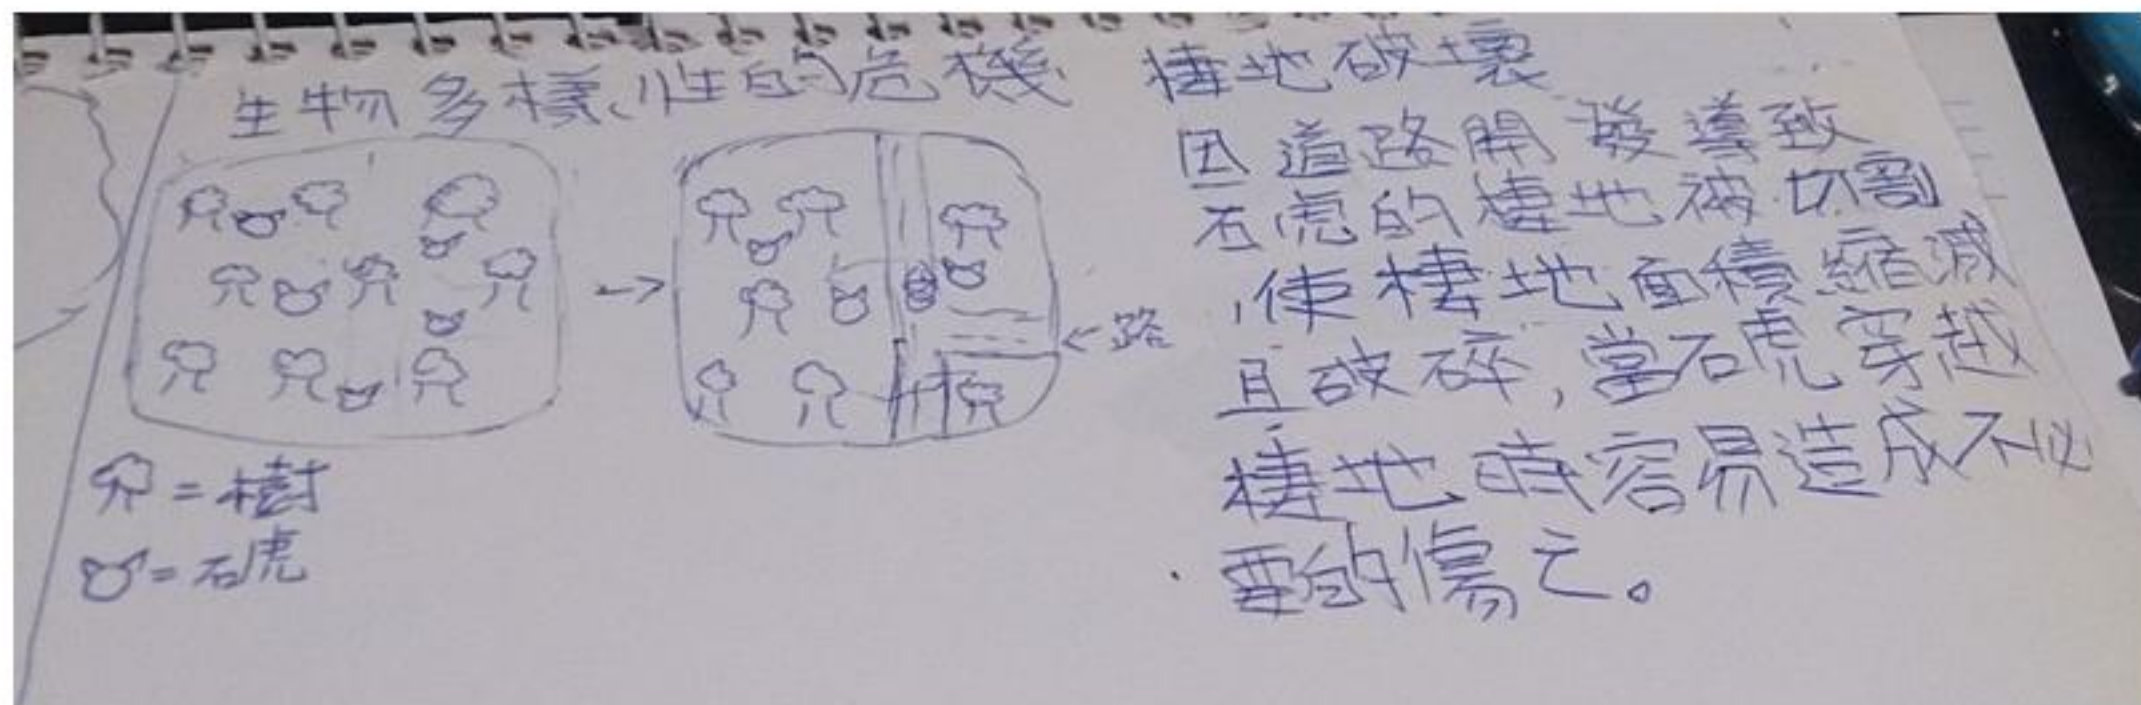 生物多樣性的危機
棲地破壞
因道路開發導致
石虎的棲地被切割
,使棲地面積縮減
且破碎,當石虎穿越
棲地時容易造成不必
要的傷亡。
←路
=樹
=石虎